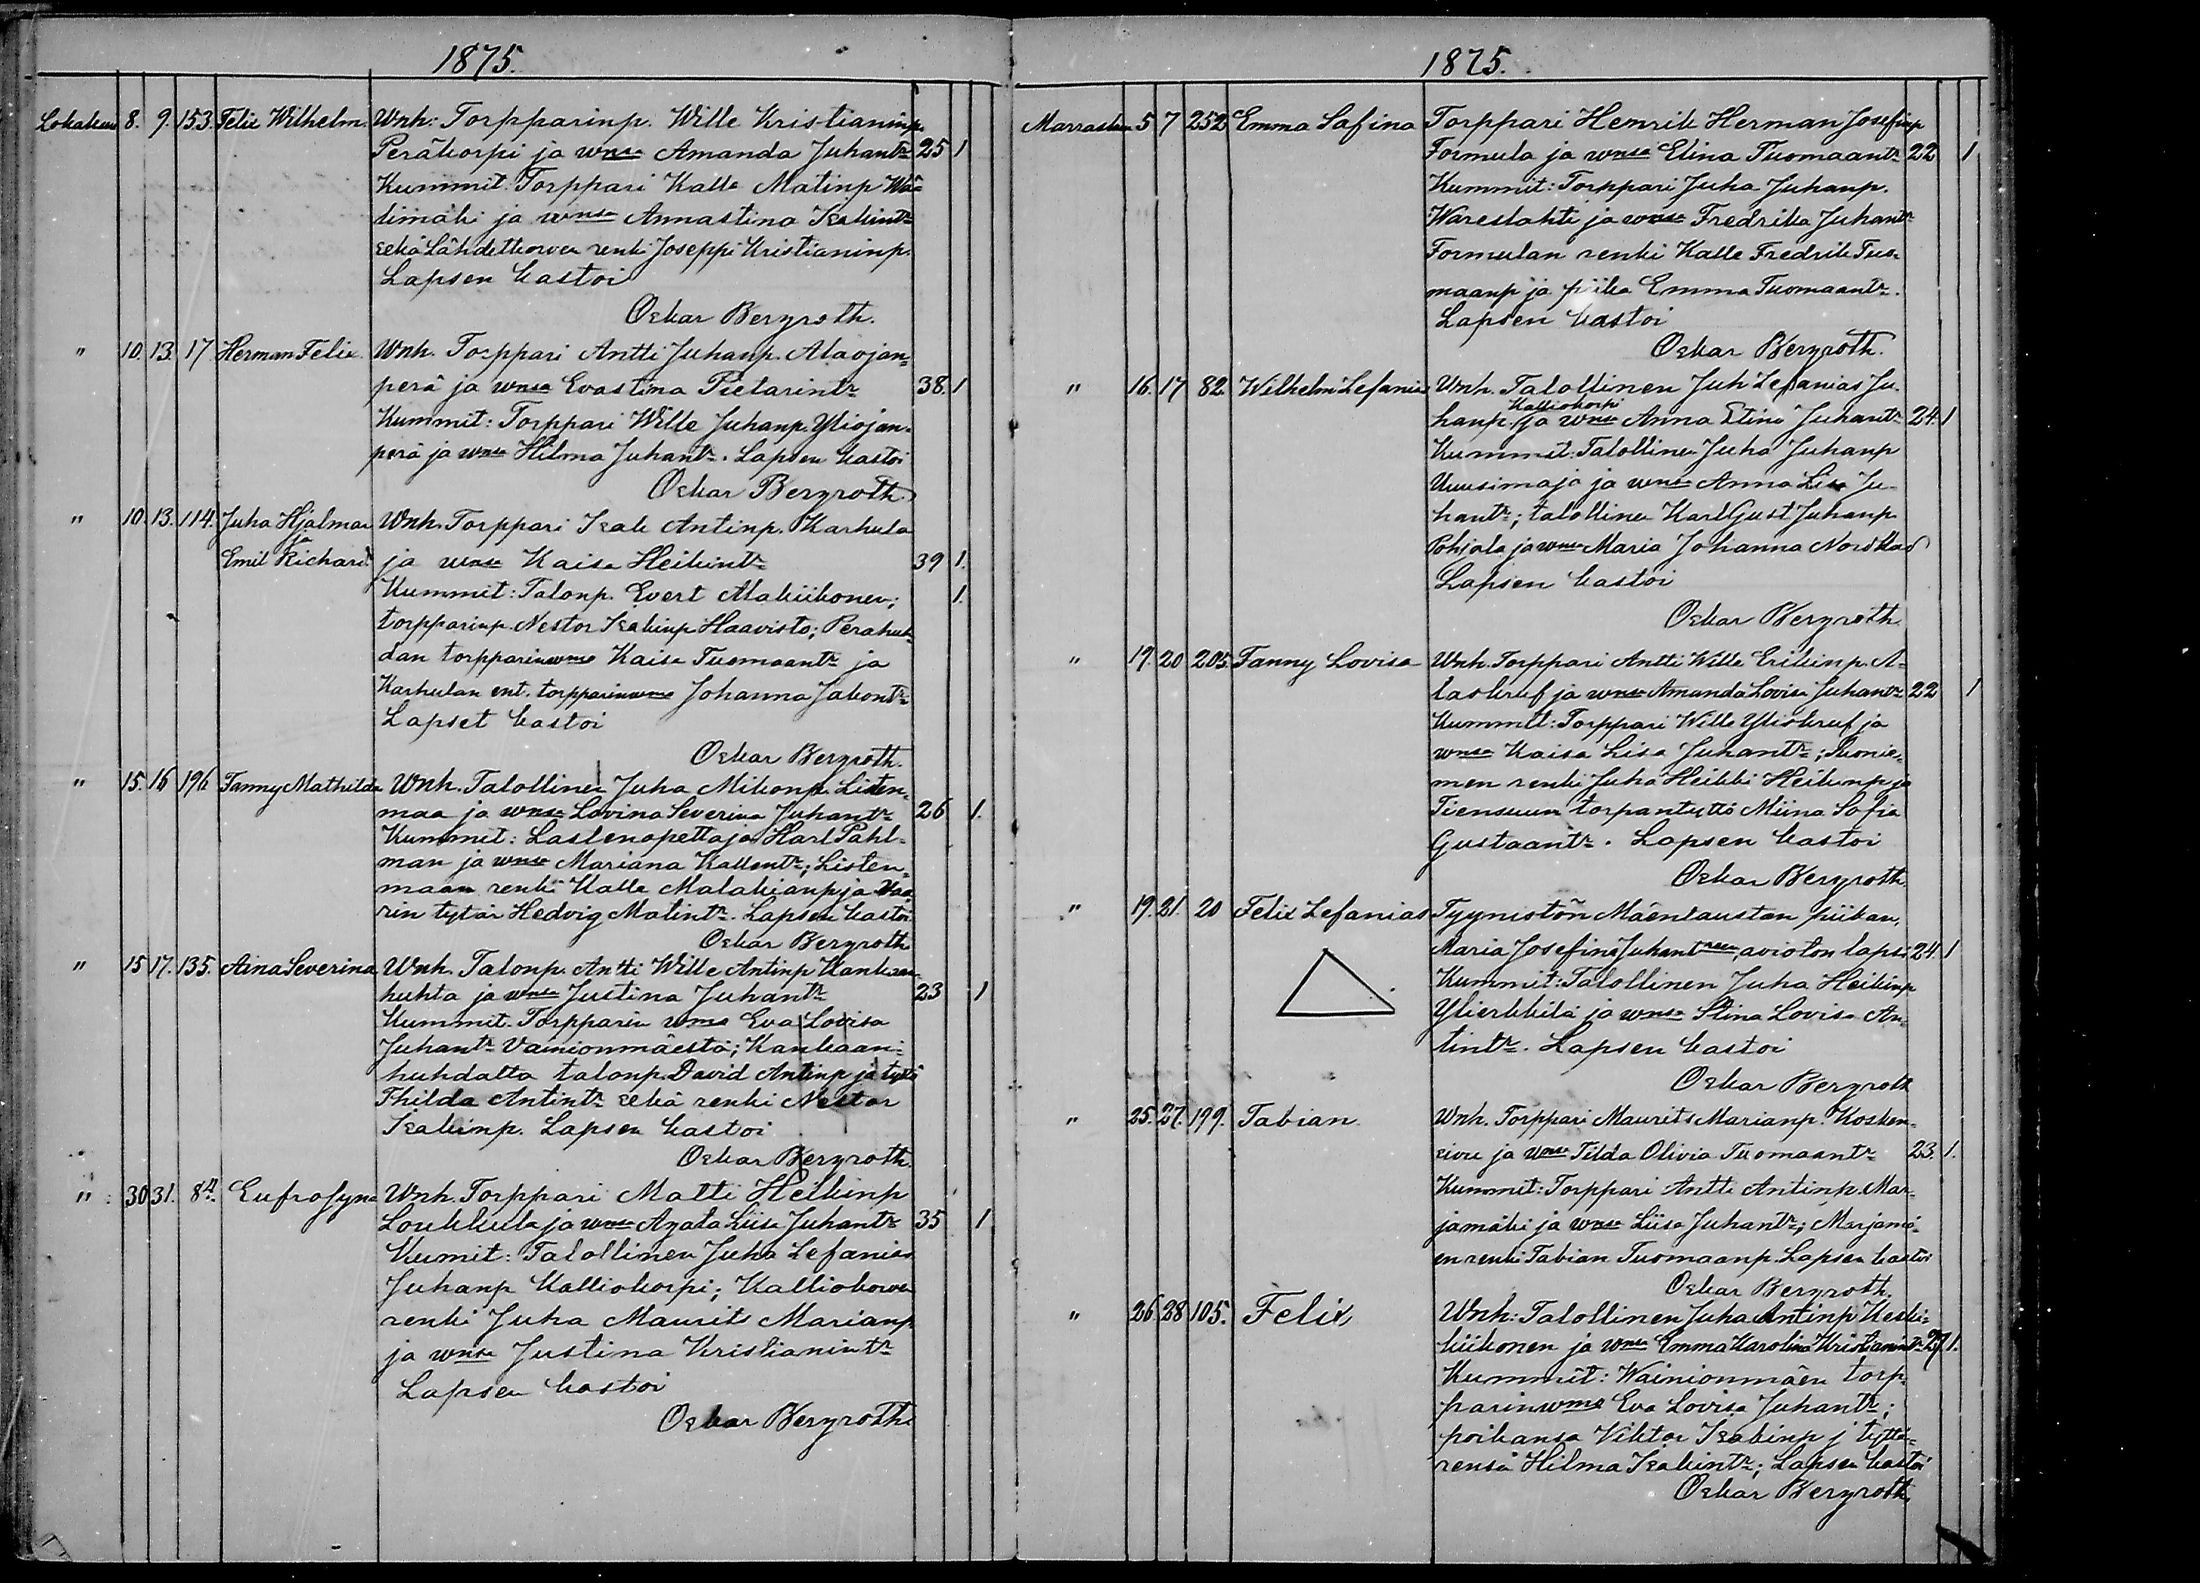 1875.
Lokakuu 8. 9. 153. Felix Wilhelm. Wnh: Torpparinp. Wille Kristianinp.
Peräkorpi ja wmsa Amanda Juhantr 25 1
Kummit: Torppari Kalle Matinp Wä=
limäki ja wmsa Annastina Isakintr
sekä Lähdekorven renki Joseppi Kristianinp.
Lapsen kastoi
Oskar Bergroth.
" 10. 13. 17 Herman Felix. Wnh. Torppari Antti Juhanp. Alaojan=
perä ja wmsa Evastina Pietarintr 38. 1
Kummit: Torppari Wille Juhanp. Yliojan=
perä ja wmsa Hilma Juhantr. Lapsen kastoi
Oskar Bergroth.
" 10. 13. 114. Juha Hjalmar Wnh. Torppari Isak Antinp. Karhula
ja
Emil Richard. ja wmsa Kaisa Heikintr 39 1.
Kummit: Talonp. Evert Alakiikonen; 1.
torpparinp. Nestor Isakinp Haavisto; Perähuh=
dan torpparinwmo Kaisa Tuomaantr ja
Karhulan ent. torpparinwmo Johanna Jakontr
Lapset kastoi
Oskar Bergroth.
" 15. 16 196 Fanny Mathilda Wnh. Talollinen Juha Mikonp. Listen=
maa ja wmsa Lovina Severina Juhantr 26 1.
Kummit: Lastenopettaja Karl Pahl=
man ja wmsa Mariana Kallentr; Listen=
maan renki Kalle Malakianp ja
rin tytär Hedvig Matintr. Lapsen kastoi
Oskar Bergroth.
" 15 17. 135. Aina Severina Wnh. Talonp. Antti Wille Antinp Kankaan=
huhta ja wmsa Justina Juhantr 23 1
Kummit. Torpparin wmo Eva Lovisa
Juhantr Vainionmäestä; Kankaan=
huhdalta talonp. David Antinp ja tyttö
Thilda Antintr sekä renki Nestor
Isakinp. Lapsen kastoi
Oskar Bergroth.
" 30 31. 84. Eufrosyna Wnh. Torppari Matti Heikinp
Loukkula ja wmsa Agata Liisa Juhantr 35 1
Kumit: Talollinen Juha Sefanias
Juhanp Kalliokorpi; Kalliokorven
renki Juha Maurits Marianp.
ja wmsa Justina Kristianintr
Lapsen kastoi
Oskar Bergroth.
1875.
Marraskuu 5 7 252 Emma Safina Torppari Henrik Herman Josefinp
Formula ja wmsa Elina Tuomaantr 22 1
Kummit: Torppari Juha Juhanp.
Wareslahti ja wmsa Fredrika Juhantr
Formulan renki Kalle Fredrik Tuo=
maanp ja piika Emma Tuomaantr.
Lapsen kastoi
Oskar Bergroth.
" 16. 17 82. Wilhelm Sefanias Wnh. Talollinen Juh Sefanias Ju=
Kalliokorpi
hanp. ja wmsa Anna Stina Juhantr 24. 1
Kummit: Talollinen Juha Juhanp
Uuusimaja ja wmsa Anna Lisa Ju=
hantr; talollinen Karl Gust Juhanp
Pohjala ja wmsa Maria Johanna Nordblad
Lapsen kastoi
Oskar Bergroth
" 19. 20 205. Fanny Lovisa Wnh. Torppari Antti Wille Erikinp. A=
laskruf ja wmsa Amanda Lovisa Juhantr 22 1
Kummit: Torppari Wille Yliskruuf ja
wmsa Kaisa Lisa Juhantr; Suonie=
men renki Juha Heikki Heikinp ja
Tiensuun torpantyttö Miina Sofia
Gustaantr. Lapsen kastoi
Oskar Bergroth
" 19. 21. 20 Felix Sefanias Tyynistön Mäenlaustan piikan,
Maria Josefina Juhantren avioton lapsi 24. 1
Kummit: Talollinen Juha Heikinp
Ylierkkilä ja wmsa Stina Lovisa An=
tintr. Lapsen kastoi
Oskar Bergroth
" 25. 27. 199. Fabian. Wnh. Torppari Maurits Marianp. Kosken=
sivu ja wmsa Tilda Olivia Tuomaantr 23. 1.
Kummit: Torppari Antti Antinp. Mar=
jamäki ja wmsa Liisa Juhantr; Marjamä=
en renki Fabian Tuomaanp. Lapsen kastoi
Oskar Bergroth.
" 26 28 105. Felix Wnh: Talollinen Juha Antinp Keski=
kiikonen ja wmsa Emma Karolina Kristianintr 27 1.
Kummit: Wainionmäen torp=
parinwmo Eva Lovisa Juhantr;
poikansa Viktor Isakinp j tyttä=
rensä Hilma Isakintr; Lapsen kastoi
Oskar Bergroth.